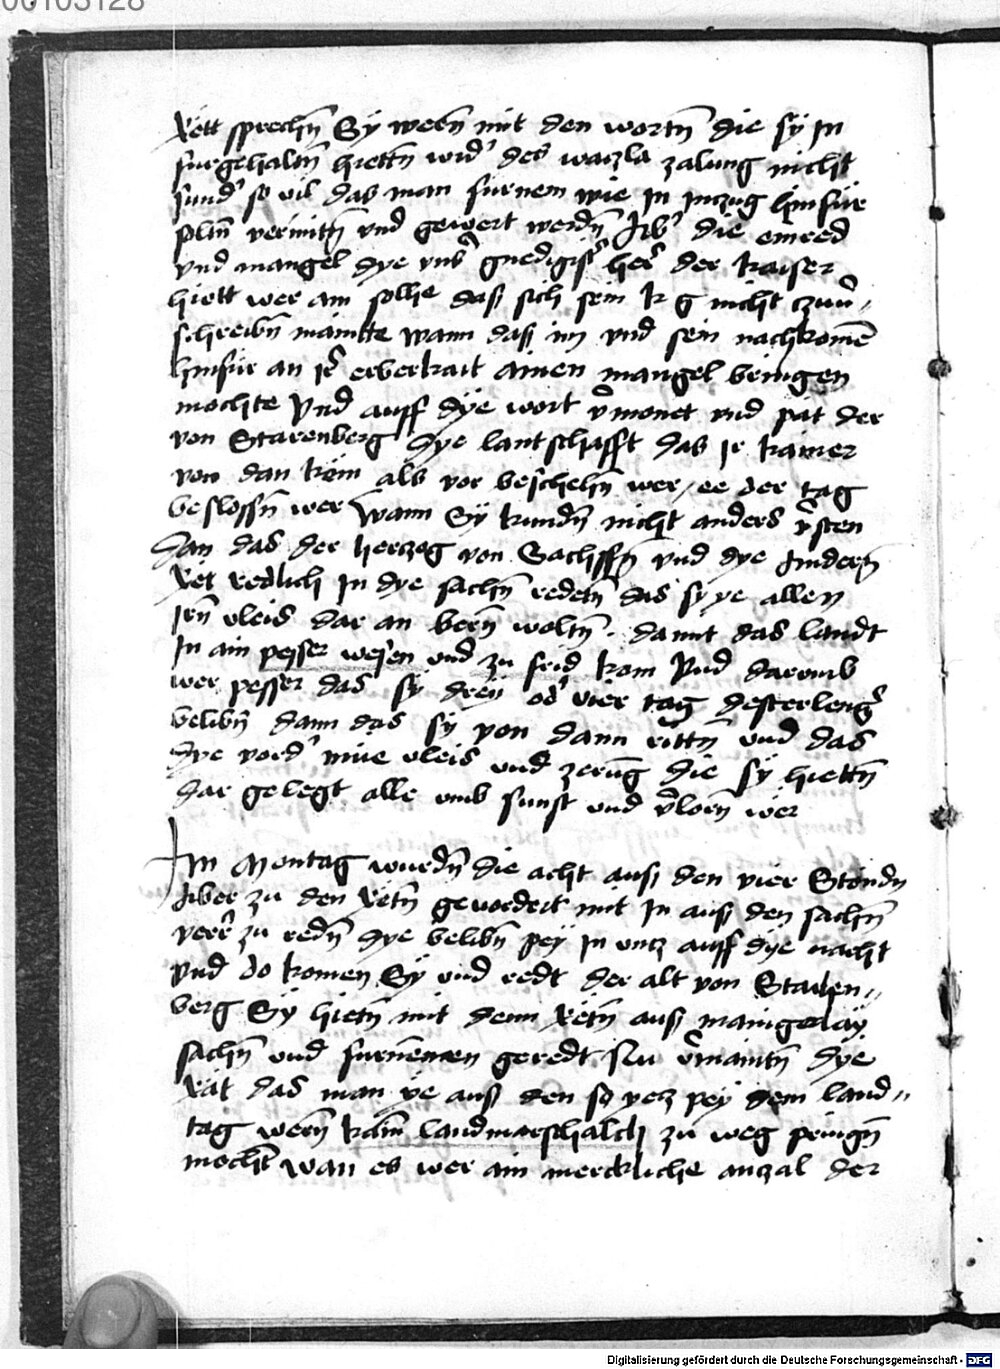 00103128
Rett sprechn Sy wern mit den wortn die sy In
furgehaltn hiettn wid' des waczla zalung nicht
sund' so vil das man furnem wie In Inczug hinfür
soltn vermitn vnd gewert werdn Ab' die einred
vnd mangel dye vns' gnedigist' her' der kaiser
hiett wer am sollhe daß sich sein k g nicht czuu'
schreibn mainte wann daß im vnd sein nachkomen
hinfür an ir' erberkait ainen mangel bringen
mochte Vnd auff dye wort v'monet vnd pat der
von Starenberg dye lantschafft das Ir kainer
von dan kem als vor beschehn wer / ee der tag
beslossn wer Wann Sy kundn nicht anders v'sten
dan das der herczog von Sachssn vnd dye Andern
Ret redlich In dye sachn redetn das sy ye allen
Irn vleis dar an kern woltn . damit das landt
In ain pesser wesen vnd zu frid kom Vnd darumb
wer pesser das sy drey od' vier tag desterleng'
belibn dann das sy von dann rittn vnd das
dye vord' müe vleis vnd zerung die sy hiettn
dar gelegt alle vmb sunst vnd v'lorn wer
Am Montag wurdn die acht auß den vier Stendn
Aber zu den Retn gevordert mit In auß den sachn
verr' zu redn dye belibn pey In vncz auff dye nacht
vnd do komen Sy vnd redt der alt von Starhen=
berg Sy hietn mit denn Retn auß manigerlay
sachn vnd furnemen geredt Nu v'maintn dye
Rät das man ye auß den so yecz pey dem land=
tag wern kain landmarschalch zu weg pringn
mocht wan es wer ain merckliche anzal der
Digitalisierung gefördert durch die Deutsche Forschungsgemeinschaft - DFG